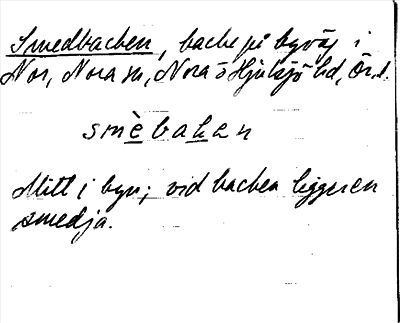 Smedbacken, backe på byväg i
Nor, Nora sn, Nora o Hjulsjö hd, Ör.l.
smèbaken
Mitt i byn; vid backen ligger en
smedja.